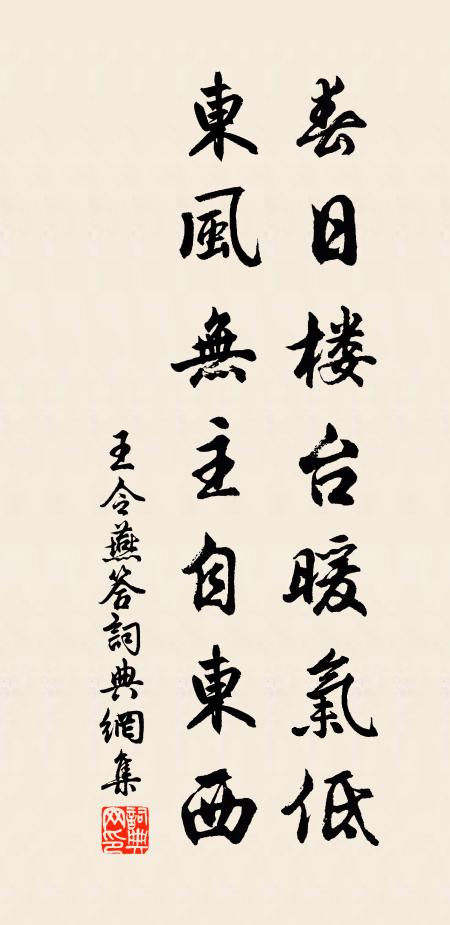 春日楼台暖氣低
東風無主自東西
王令燕答詞典網集
詞典
网印